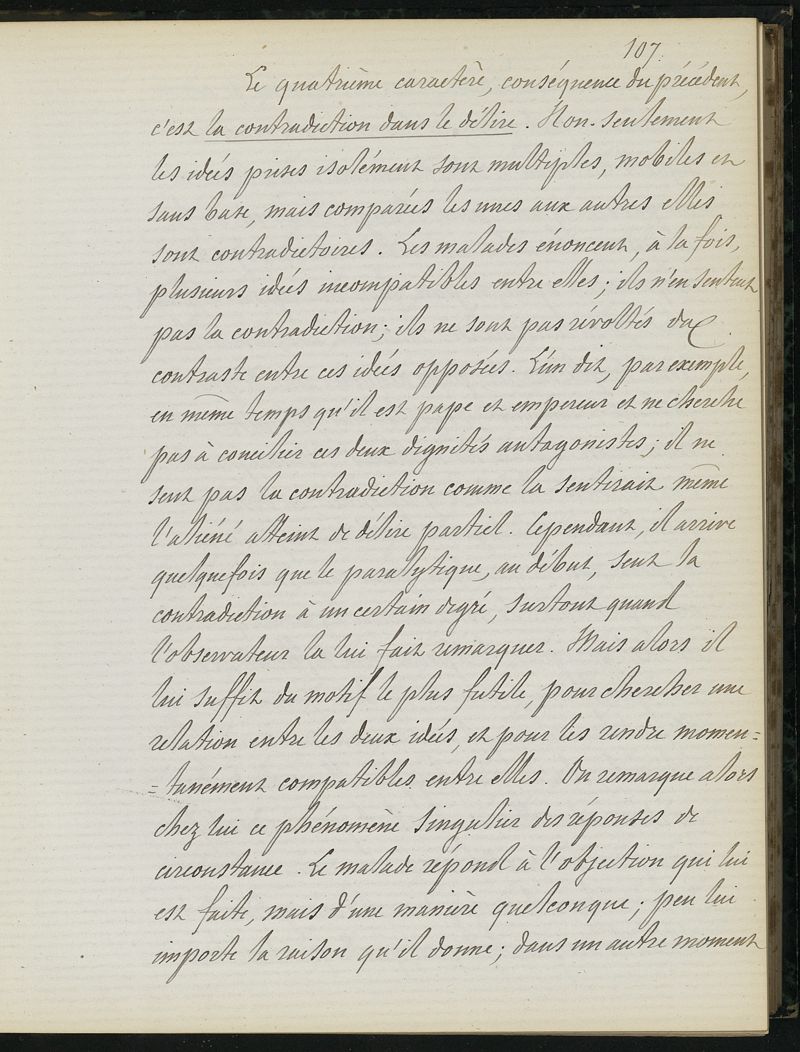 107.
Le quatrième caractère, conséquence du précédent,
c'est la contradiction dans le délire. Non-seulement
les idées prises isolément sont multiples, mobiles et
sans base, mais comparées les unes aux autres elles
sont contradictoires. Les malades énoncent, à la fois,
plusieurs idées incompatibles entre elles; ils n'en sentent
pas la contradiction; ils ne sont pas révoltés du
contraste entre ces idées opposées. L'un dit, par exemple,
en même temps qu'il est pape et empereur et ne cherche
pas à concilier ces deux dignités antagonistes; il ne
sent pas la contradiction comme la sentirait même
l'aliéné atteint de délire partiel. Cependant, il arrive
quelquefois que le paralytique, au début, sent la
contradiction à un certain degré, surtout quand
l'observateur la lui fait remarquer. Mais alors il
lui suffit du motif le plus futile, pour chercher une
relation entre les deux idées, et pour les rendre momen=
=tanément compatibles entre elles. On remarque alors
chez lui ce phénomène singulier des réponses de
circonstance. Le malade répond à l'objection qui lui
est faite, mais d'une manière quelconque; peu lui
importe la raison qu'il donne; dans un autre moment